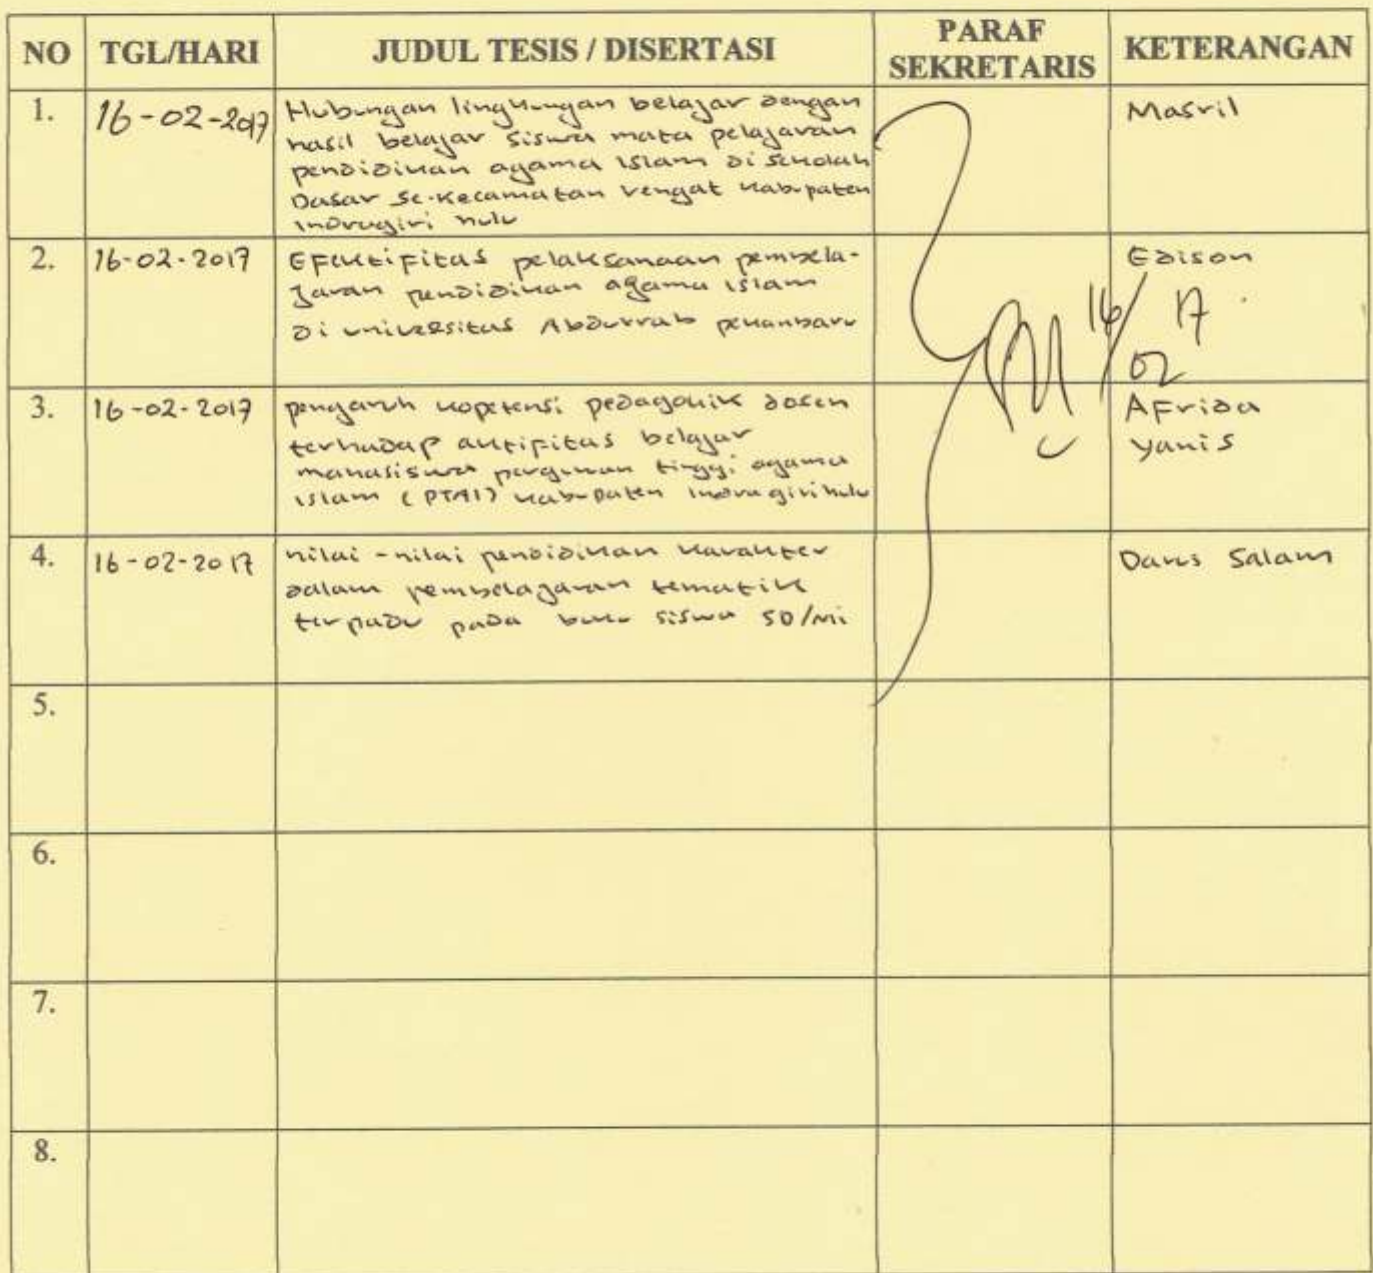 NO TGL/HARI JUDUL TESIS / DISERTASI PARAF SEKRETARIS KETERANGAN
1. 16-02-2017 Hubungan lingkungan belajar dengan Masril
hasil belajar siswa mata pelajaran
pendidikan agama islam di sekolah
Dasar se-kecamatan rengat kabupaten
indragiri hulu
2. 16-02-2017 Efektifitas pelaksanaan pembela- Edison
jaran pendidikan agama islam
di universitas Abdurrab pekanbaru
16/02 17
3. 16-02-2017 pengaruh kopetensi pedagogik dosen Afrida
terhadap aktifitas belajar yanis
mahasiswa perguruan tinggi agama
islam (PTAI) kabupaten indragiri hulu
4. 16-02-2017 nilai-nilai pendidikan karakter Darus Salam
dalam pembelajaran tematik
terpadu pada buku siswa SD/mi
5.
6.
7.
8.